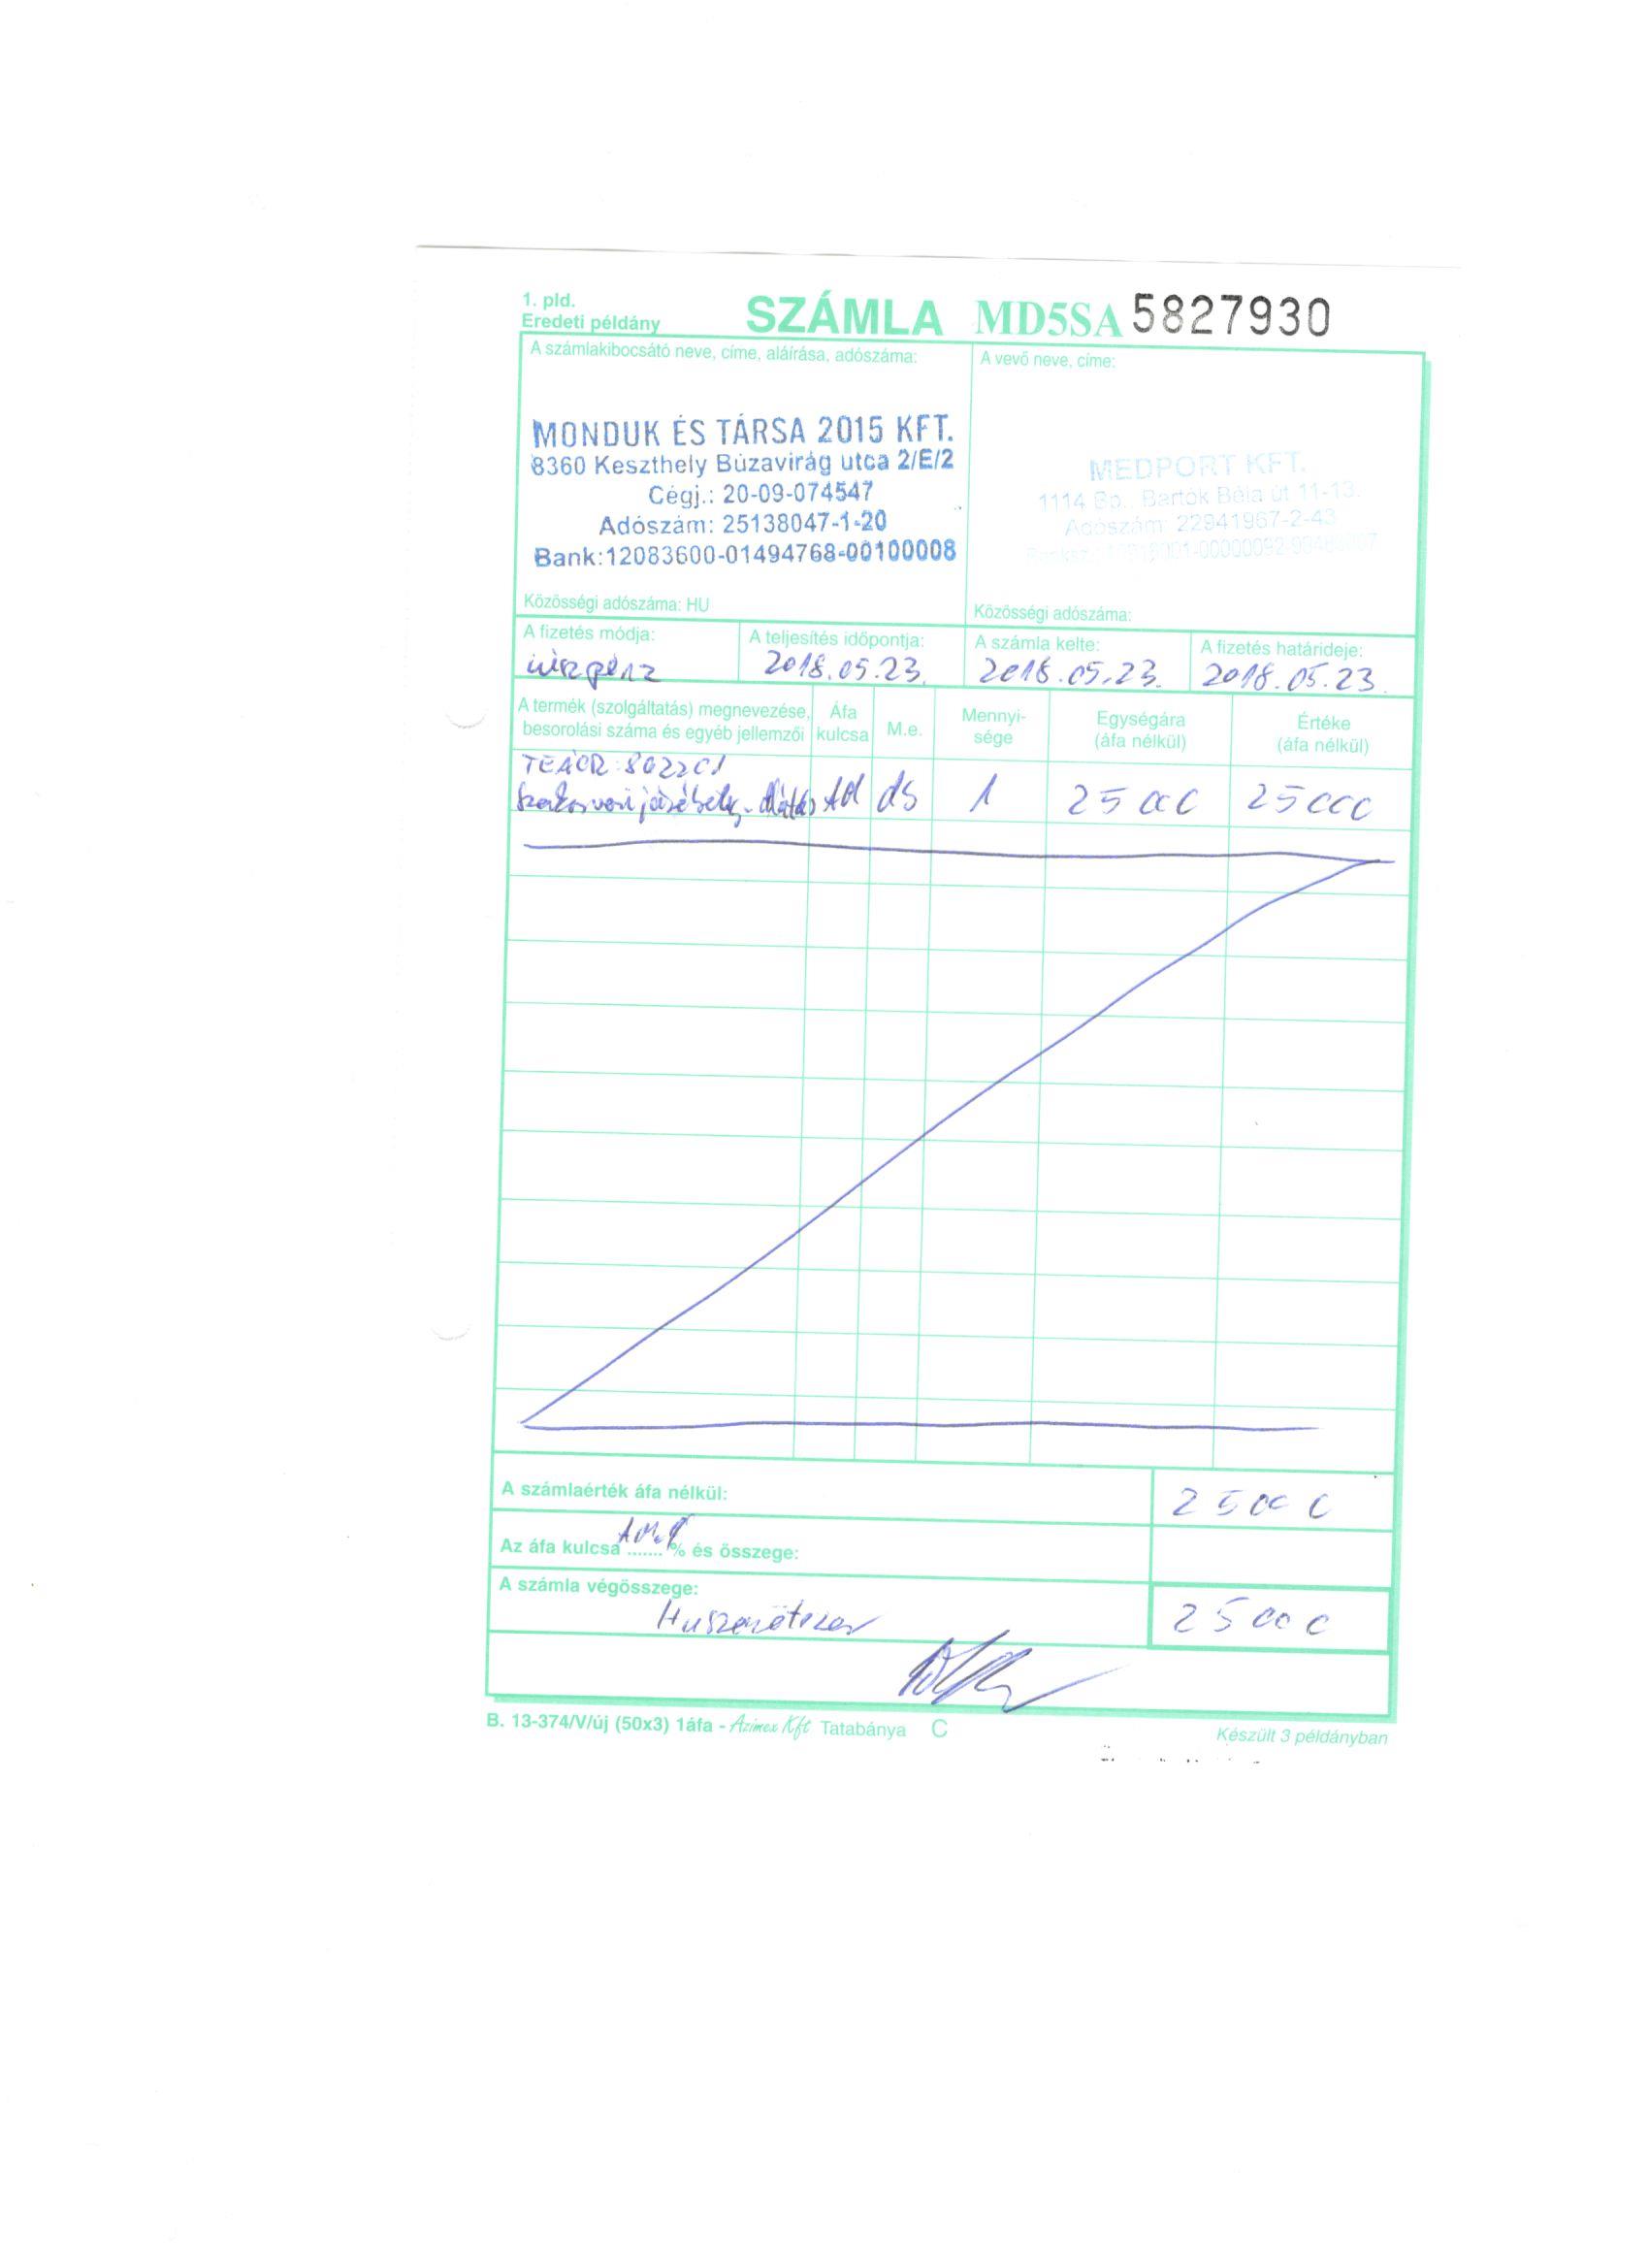 1. pld.
Eredeti példány
SZÁMLA MD5SA 5827930
A számlakibocsátó neve, címe, aláírása, adószáma:
MONDUK ÉS TÁRSA 2015 KFT.
8360 Keszthely Búzavirág utca 2/E/2
Cégj.: 20-09-074547
Adószám: 25138047-1-20
Bank:12083600-01494768-00100008
Közösségi adószáma: HU
A vevő neve, címe:
MEDPORT KFT.
1114 Bp., Bartók Béla út 11-13.
Adószám: 22941967-2-43
Közösségi adószáma:
A fizetés módja:
A teljesítés időpontja:
2018.05.23.
A számla kelte:
2018.05.23.
A fizetés határideje:
2018.05.23.
A termék (szolgáltatás) megnevezése, besorolási száma és egyéb jellemzői
Áfa kulcsa
M.e.
Mennyi-sége
Egységára (áfa nélkül)
Értéke (áfa nélkül)
TEÁOR: 862201
1 25000 25000
A számlaérték áfa nélkül: 25000
Az áfa kulcsa ....... % és összege:
A számla végösszege: 25000
Huszonötezer
B. 13-374/V/új (50x3) 1áfa - Azimex Kft Tatabánya C
Készült 3 példányban